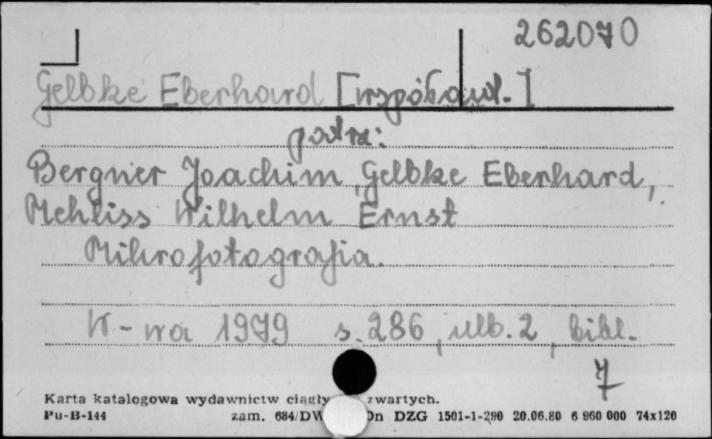 262070
Gelbke Eberhard [współaut.]
patrz:
Bergner Joachim, Gelbke Eberhard,
Mehliss Wilhelm Ernst
Mikrofotografia.
W-wa 1979 s. 286, nlb. 2, bibl.
7
Karta katalogowa wydawnictw ciągły zwartych.
Pu-B-144 zam. 684/DW Dn DZG 1501-1-290 20.06.80 6 960 000 74x120